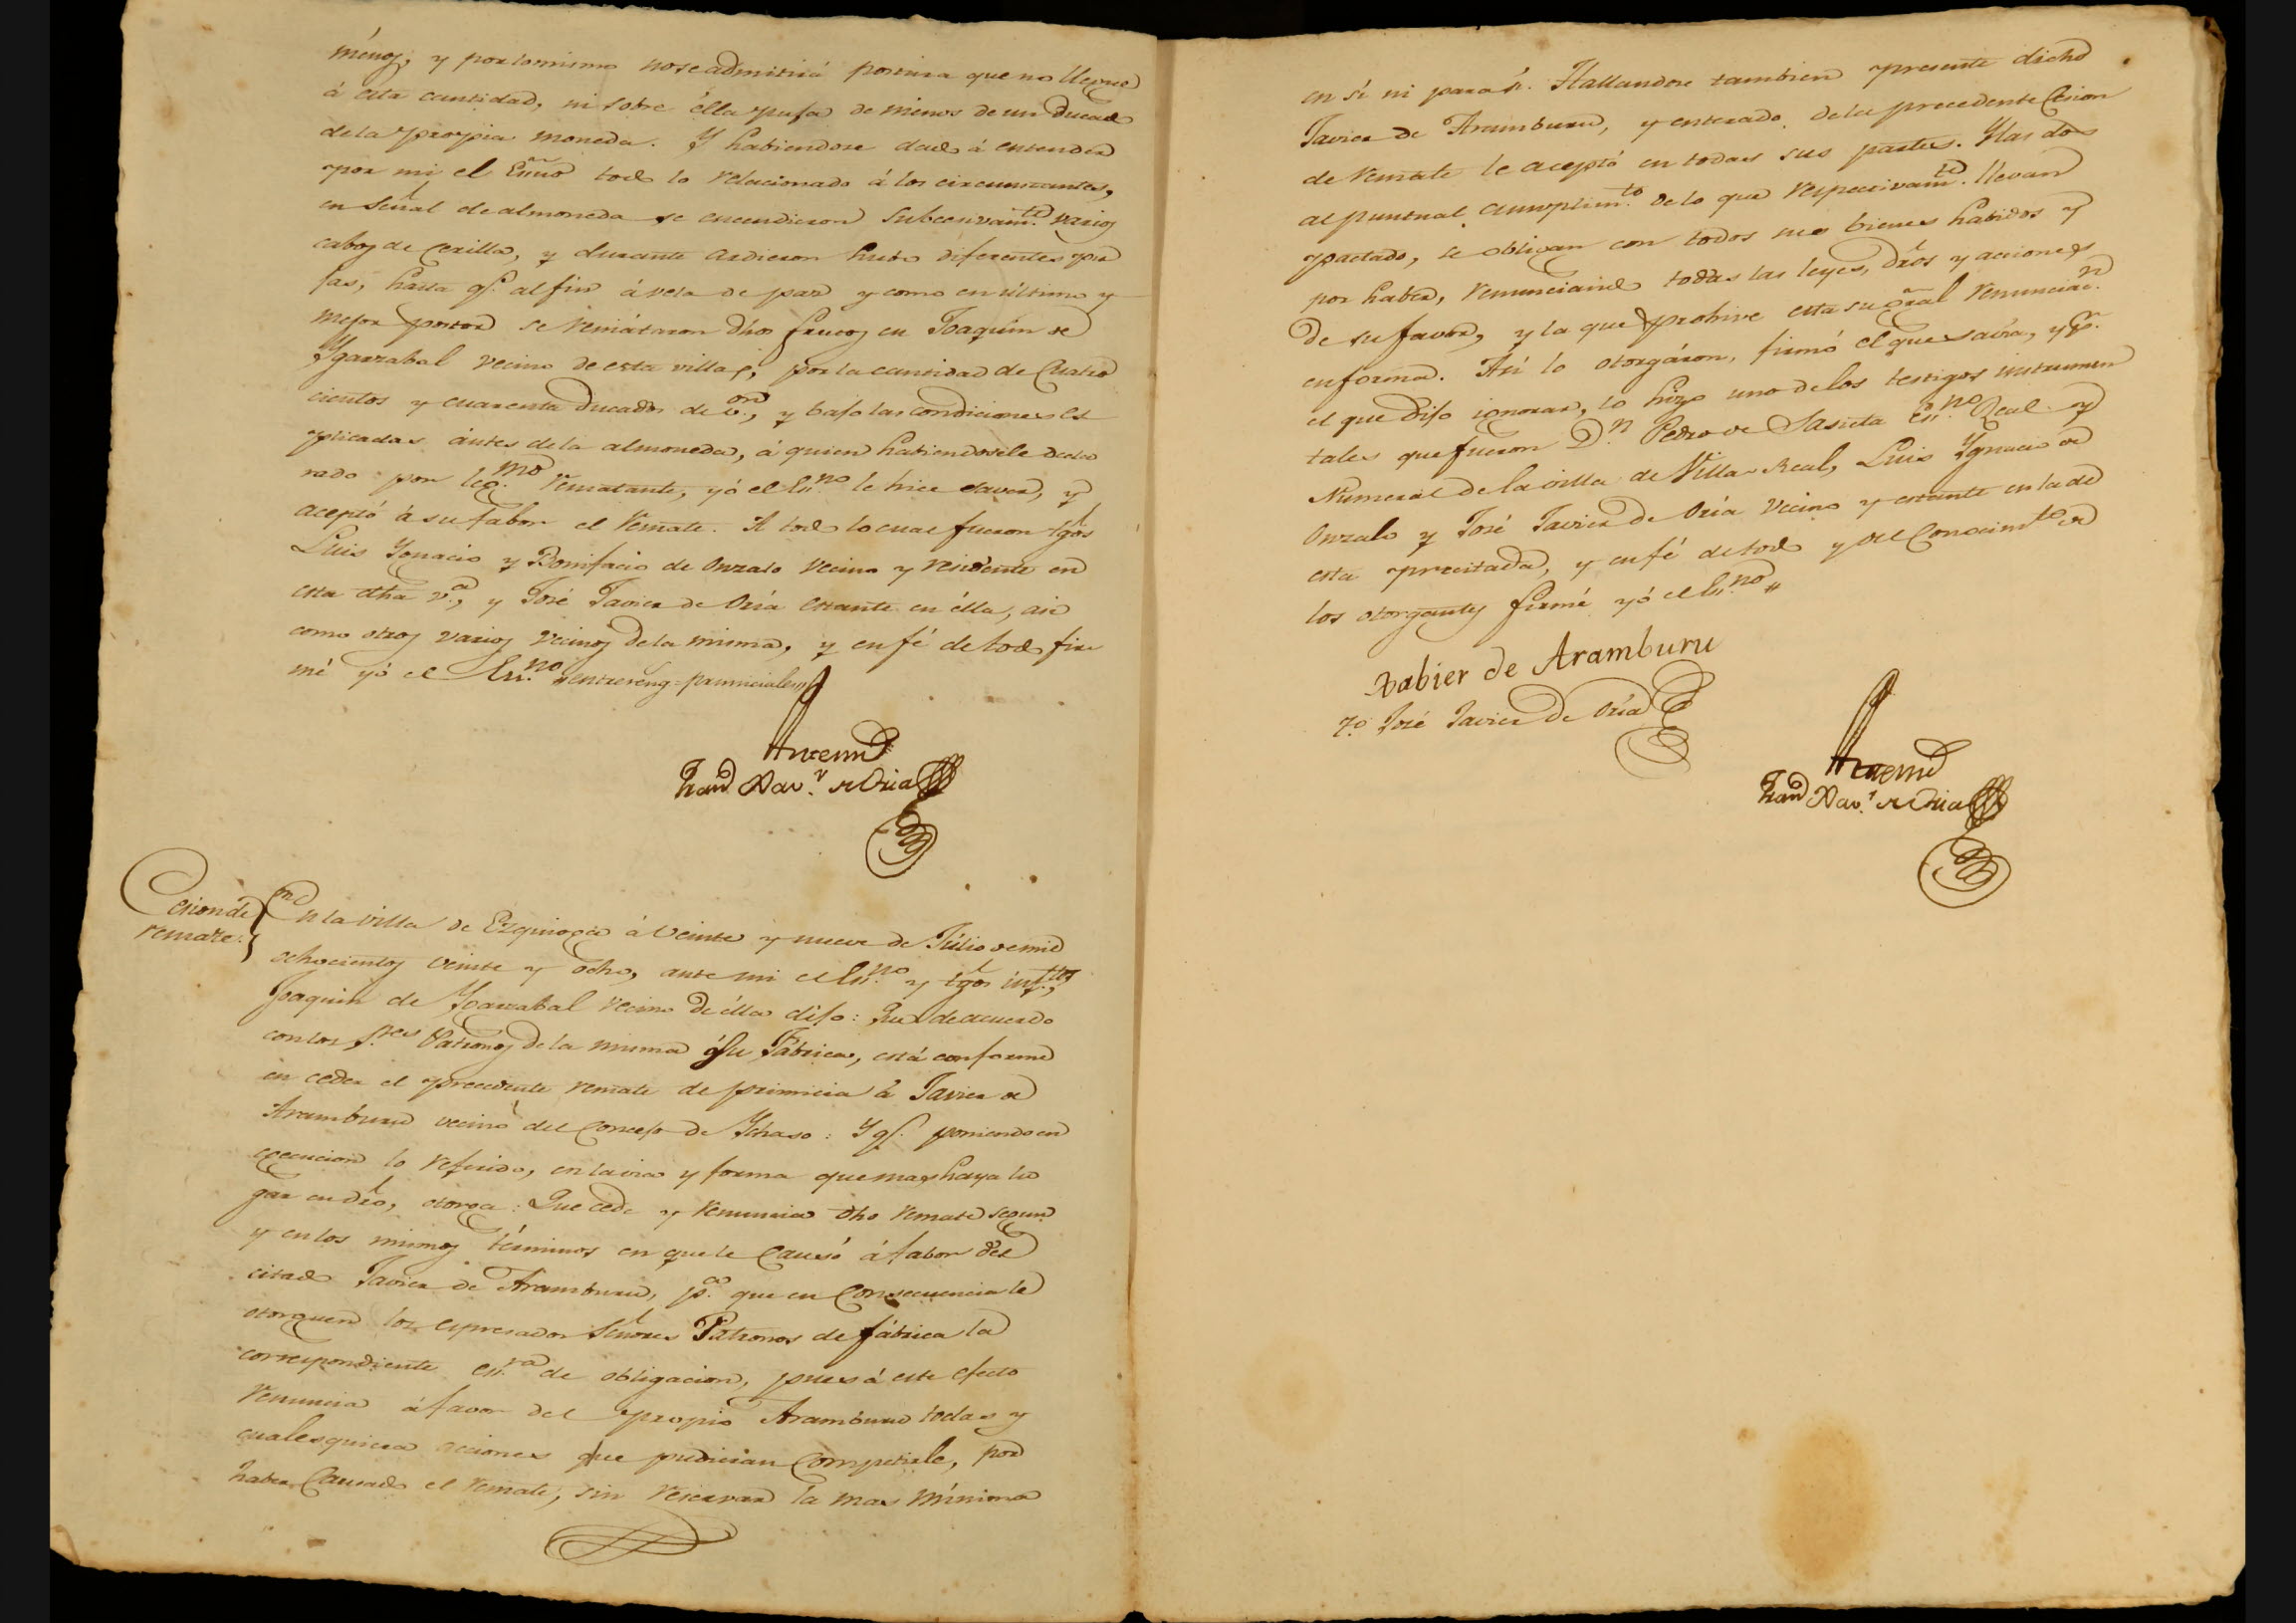 ménos, y por lo mismo no se admitirá postura que no llegue
á esta cantidad, ni sobre élla puja de menos de un Ducado
de la propia moneda. Y habiendose dado á entender
por mi el Essno todo lo relacionado á los circunstantes,
en señal de almoneda se encendieron subcesivamte varios
cabos de Cerilla, y durante ardieron hubo diferentes pu
jas, hasta qe al fin á vela de par y como en último y
mejor postor se remátaron dhos frutos en Joaquin de
Ygarzabal vecino de esta villa, por la cantidad de Cuatro
cientos y cuarenta Ducados de von, y bajo las condiciones es
plicadas ántes de la almoneda, á quien habiendosele decla
rado por legmo rematante, yó el Essno le hice saver, y
aceptó á su fabor el remate. A todo lo cual fueron tgos
Luis Ygnacio y Bonifacio de Onzalo vecino y residente en
esta dha va, y José Javier de Oria estante en élla, asi
como otros varios vecinos de la misma, y en fé de todo fir
mé yó el Essno entrereng = primiciales
Antemi
Franco Xavr de Oria
Cesion de
remate.
En la villa de Ezquioga á veinte y nueve de Júlio de mil
ochocientos veinte y ocho, ante mi el Essno y tgos inftos,
Joaquin de Ygarzabal vecino de élla dijo: Que de acuerdo
con los Sres Patronos de la misma ó su Fábrica, está conforme
en ceder el precedente remate de primicia á Javier de
Aramburu vecino del Concejo de Ychaso: Y qe poniendo en
execucion lo referido, en la via y forma que mas haya lu
gar en dro, otorga: Que cede y renuncia dho remate segun
y en los mismos términos en que le Causó á fabor del
citado Javier de Aramburu, pa que en Consecuencia le
otorguen los espresados Señores Patronos de fábrica la
correspondiente essra de obligacion, pues á este efecto
renuncia á favor del propio Aramburu todas y
cualesquiera acciones que pudieran Competirle, por
haber Causado el remate, sin reservar la mas mínima
en sí ni para sí. Hallandose tambien presente dicho
Javier de Aramburu, y enterado de la precedente Cesion
de remate le aceptó en todas sus partes. Y las dos
al puntual cumplimto de lo que respectivamte llevan
pactado, se obligan con todos sus bienes habidos y
por haber, renunciando todas las leyes, dros y acciones
de su favor, y la que prohive esta su gral renunciacn
en forma. Así lo otorgáron, firmó el que savia, y pr
el que dijo ignorar, lo hizo uno de los testigos instrumen
tales que fueron Dn Pedro de Sasieta Essno Real y
Numeral de la villa de Villa-Real, Luis Ygnacio de
Onzalo y José Javier de Oria vecino y estante en la de
esta precitada, y en fé de todo y del Conocimto de
los otorgantes firmé yó el Essno
Xabier de Aramburu
To José Javier de Oria
Antemi
Franco Xavr de Oria